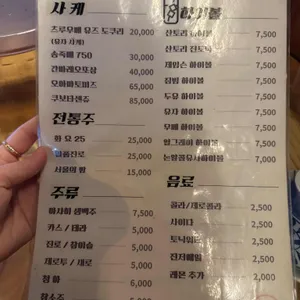 사케
츠루우메 유즈 도쿠리 20,000
(유자 사케)
송죽매 750 30,000
간바레오또상 40,000
오마마토피즈 65,000
쿠보타센쥬 85,000
전통주
화요 25 25,000
일품진로 25,000
서울의 밤 15,000
주류
아사히 생맥주 7,500
카스 / 테라 5,000
진로 / 참이슬 5,000
새로 5,000
청하 6,000
하이볼
산토리 하이볼 7,500
산토리 진토닉 7,500
제임슨 하이볼 7,500
짐빔 하이볼 7,500
두유 하이볼 7,500
유자 하이볼 7,500
우메 하이볼 7,500
얼그레이 하이볼 7,500
논알콜유사하이볼 7,000
음료
콜라/제로콜라 2,500
사이다 2,500
토닉워터 2,500
진저에일 2,500
레몬 추가 2,000